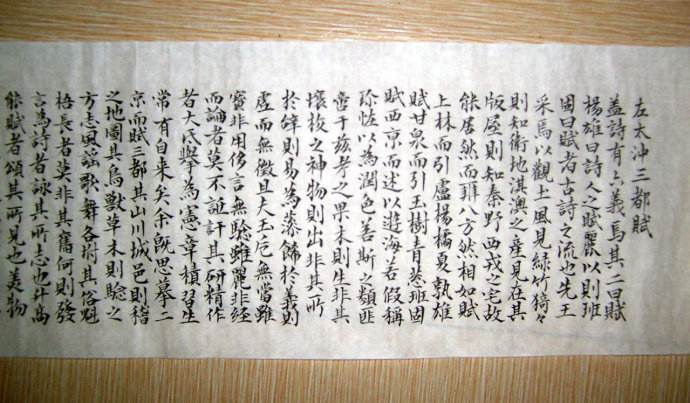 左太沖三都賦
蓋詩有六義焉其二曰賦
楊雄曰詩人之賦麗以則班
固曰賦者古詩之流也先王
采焉以觀土風見綠竹猗々
則知衛地淇澳之產見在其
版屋則知秦野西戎之宅故
能居然而辨八方然相如賦
上林而引盧橘夏孰楊雄
賦甘泉而引玉樹青葱班固
賦西京而述以遊海若假稱
珍怪以為潤色若斯之類匪
啻于茲考之果木則生非其
壤挍之神物則出非其所
於辭則易為藻飾於義則
虛而無徵且夫玉卮無當雖
寶非用侈言無驗雖麗非經
而論者莫不詆訐其研精作
者大氐舉為憲章積習生
常有自来矣余既思摹二
京而賦三都其山川城邑則稽
之地圖其鳥獸草木則驗之
方志風謠歌舞各附其俗魁
梧長者莫非其舊何則發
言為詩者詠其所志也升高
能賦者頌其所見也美物